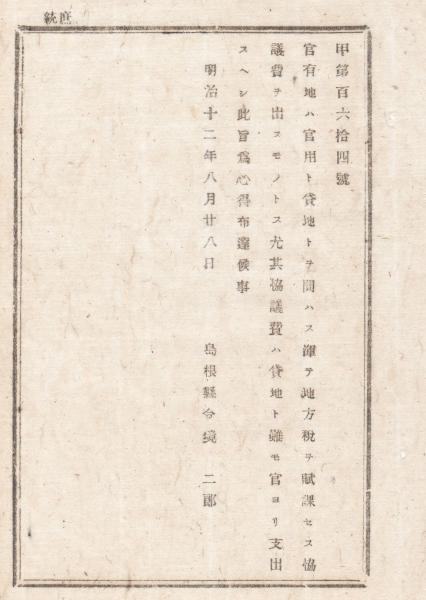 庶統
甲第百六拾四號
官有地ハ官用ト貸地トヲ問ハス渾テ地方税ヲ賦課セス協
議費ヲ出スモノトス尤其協議費ハ貸地ト雖モ官ヨリ支出
スヘシ此旨爲心得布達候事
明治十二年八月廿八日
島根縣令境二郎